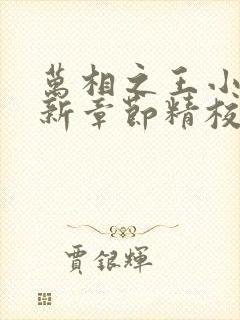 萬相之王小
新章節精校
賈銀輝